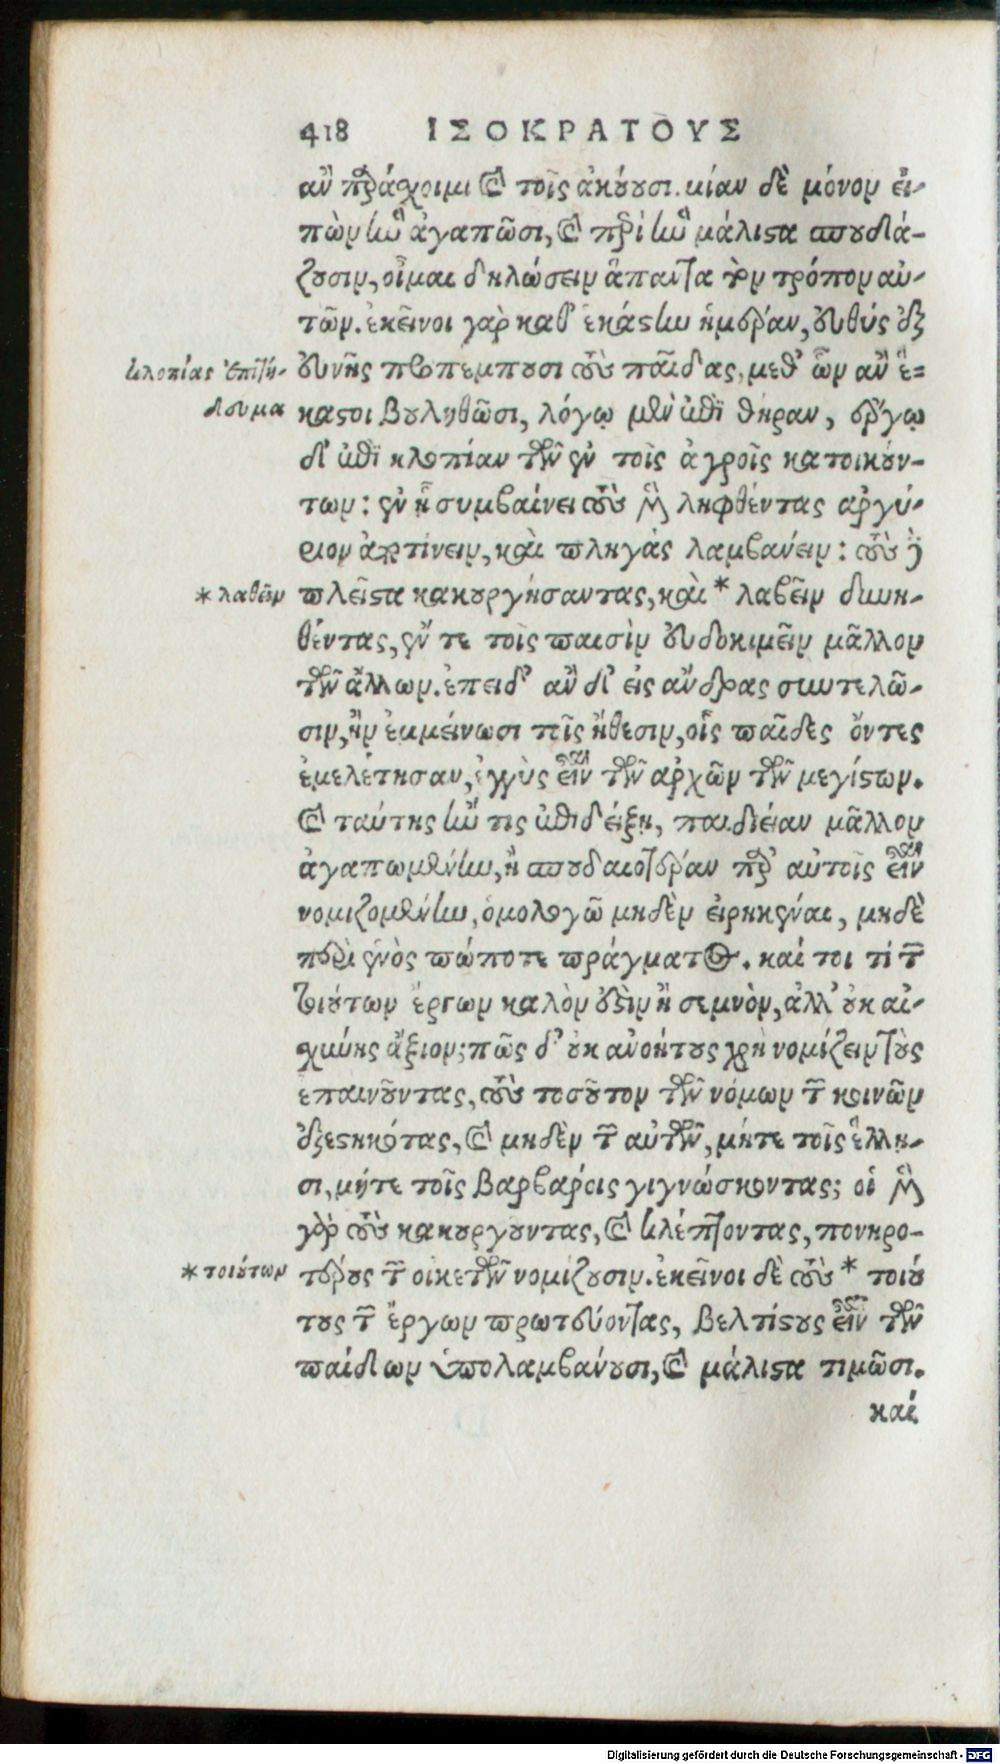 418 ΙΣΟΚΡΑΤΟΥΣ
ἂν παράσχοιμι καὶ τοῖς ἀκούουσι. μίαν δὲ μόνον εἰ-
πὼν ἣν ἀγαπῶσι, καὶ περὶ ἣν μάλιστα σπουδά-
ζουσιν, οἶμαι δηλώσειν ἅπαντα τὸν τρόπον αὐ-
τῶν. ἐκεῖνοι γὰρ καθ' ἑκάστην ἡμέραν, εὐθὺς ἐξ
κλοπίας ἐπιτή-
δευμα
εὐνῆς προπέμπουσι τοὺς παῖδας, μεθ' ὧν ἂν ἕ-
καστοι βουληθῶσι, λόγῳ μὲν ἐπὶ θήραν, ἔργῳ
δ' ἐπὶ κλοπίαν τῶν ἐν τοῖς ἀγροῖς κατοικούν-
των: ἐν ᾗ συμβαίνει τοὺς μὲν ληφθέντας ἀργύ-
ριον ἀποτίνειν, καὶ πληγὰς λαμβάνειν: τοὺς δὲ
* λαθεῖν
πλεῖστα κακουργήσαντας, καὶ * λαβεῖν δυνη-
θέντας, ἔν τε τοῖς παισὶν εὐδοκιμεῖν μᾶλλον
τῶν ἄλλων. ἐπειδ' ἂν δ' εἰς ἄνδρας συντελῶ-
σιν, ἢν ἐμμείνωσι τοῖς ἤθεσιν, οἷς παῖδες ὄντες
ἐμελέτησαν, ἐγγὺς εἶναι τῶν ἀρχῶν τῶν μεγίστων.
καὶ ταύτης ἤν τις ἐπιδείξῃ, παιδείαν μᾶλλον
ἀγαπωμένην, ἢ σπουδαιοτέραν παρ' αὐτοῖς εἶναι
νομιζομένην, ὁμολογῶ μηδὲν εἰρηκέναι, μηδὲ
περὶ ἑνὸς πώποτε πράγματος. καί τοι τί τῶν
τοιούτων ἔργων καλὸν ἐστὶν ἢ σεμνὸν, ἀλλ' οὐκ αἰ-
σχύνης ἄξιον; πῶς δ' οὐκ ἀνοήτους χρὴ νομίζειν τοὺς
ἐπαινοῦντας, τοὺς τοσοῦτον τῶν νόμων τῶν κοινῶν
ἐξεστηκότας, καὶ μηδὲν τῶν αὐτῶν, μήτε τοῖς ἕλλη-
σι, μήτε τοῖς βαρβάροις γιγνώσκοντας; οἱ μὲν
γὰρ τοὺς κακουργοῦντας, καὶ κλέπτοντας, πονηρο-
* τοιούτων
τέρους τῶν οἰκετῶν νομίζουσιν. ἐκεῖνοι δὲ τοὺς * τοιού
τους τῶν ἔργων πρωτεύοντας, βελτίστους εἶναι τῶν
παίδων ὑπολαμβάνουσι, καὶ μάλιστα τιμῶσι.
καί
Digitalisierung gefördert durch die Deutsche Forschungsgemeinschaft - DFG